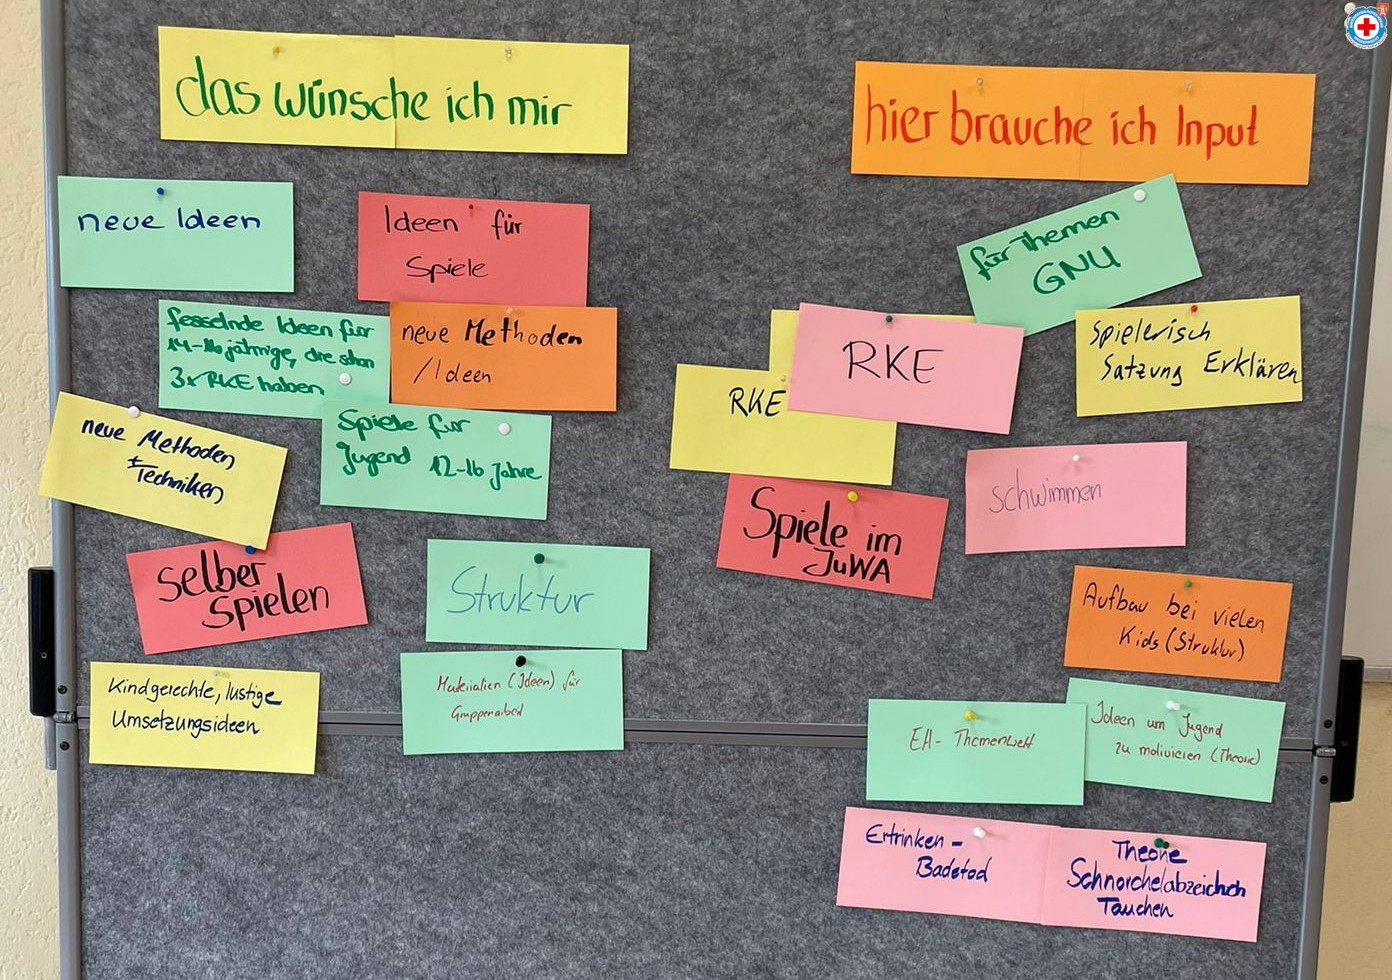 das wünsche ich mir
neue Ideen
Ideen für
Spiele
fesselnde Ideen für
14-16 jährige, die schon
3x RKE haben
neue Methoden
/Ideen
neue Methoden
+ Techniken
Spiele für
Jugend 12-16 Jahre
selber
spielen
Struktur
Kindgerechte, lustige
Umsetzungsideen
Materialien (Ideen) für
Gruppenarbeit
hier brauche ich Input
für Themen
GNU
RKE
RKE
Spielerisch
Satzung Erklären
Spiele im
JuWA
schwimmen
Aufbau bei vielen
Kids (Struktur)
EH- Themenwelt
Ideen um Jugend
zu motivieren (Theorie)
Ertrinken -
Badetod
Theorie
Schnorchelabzeichen
Tauchen